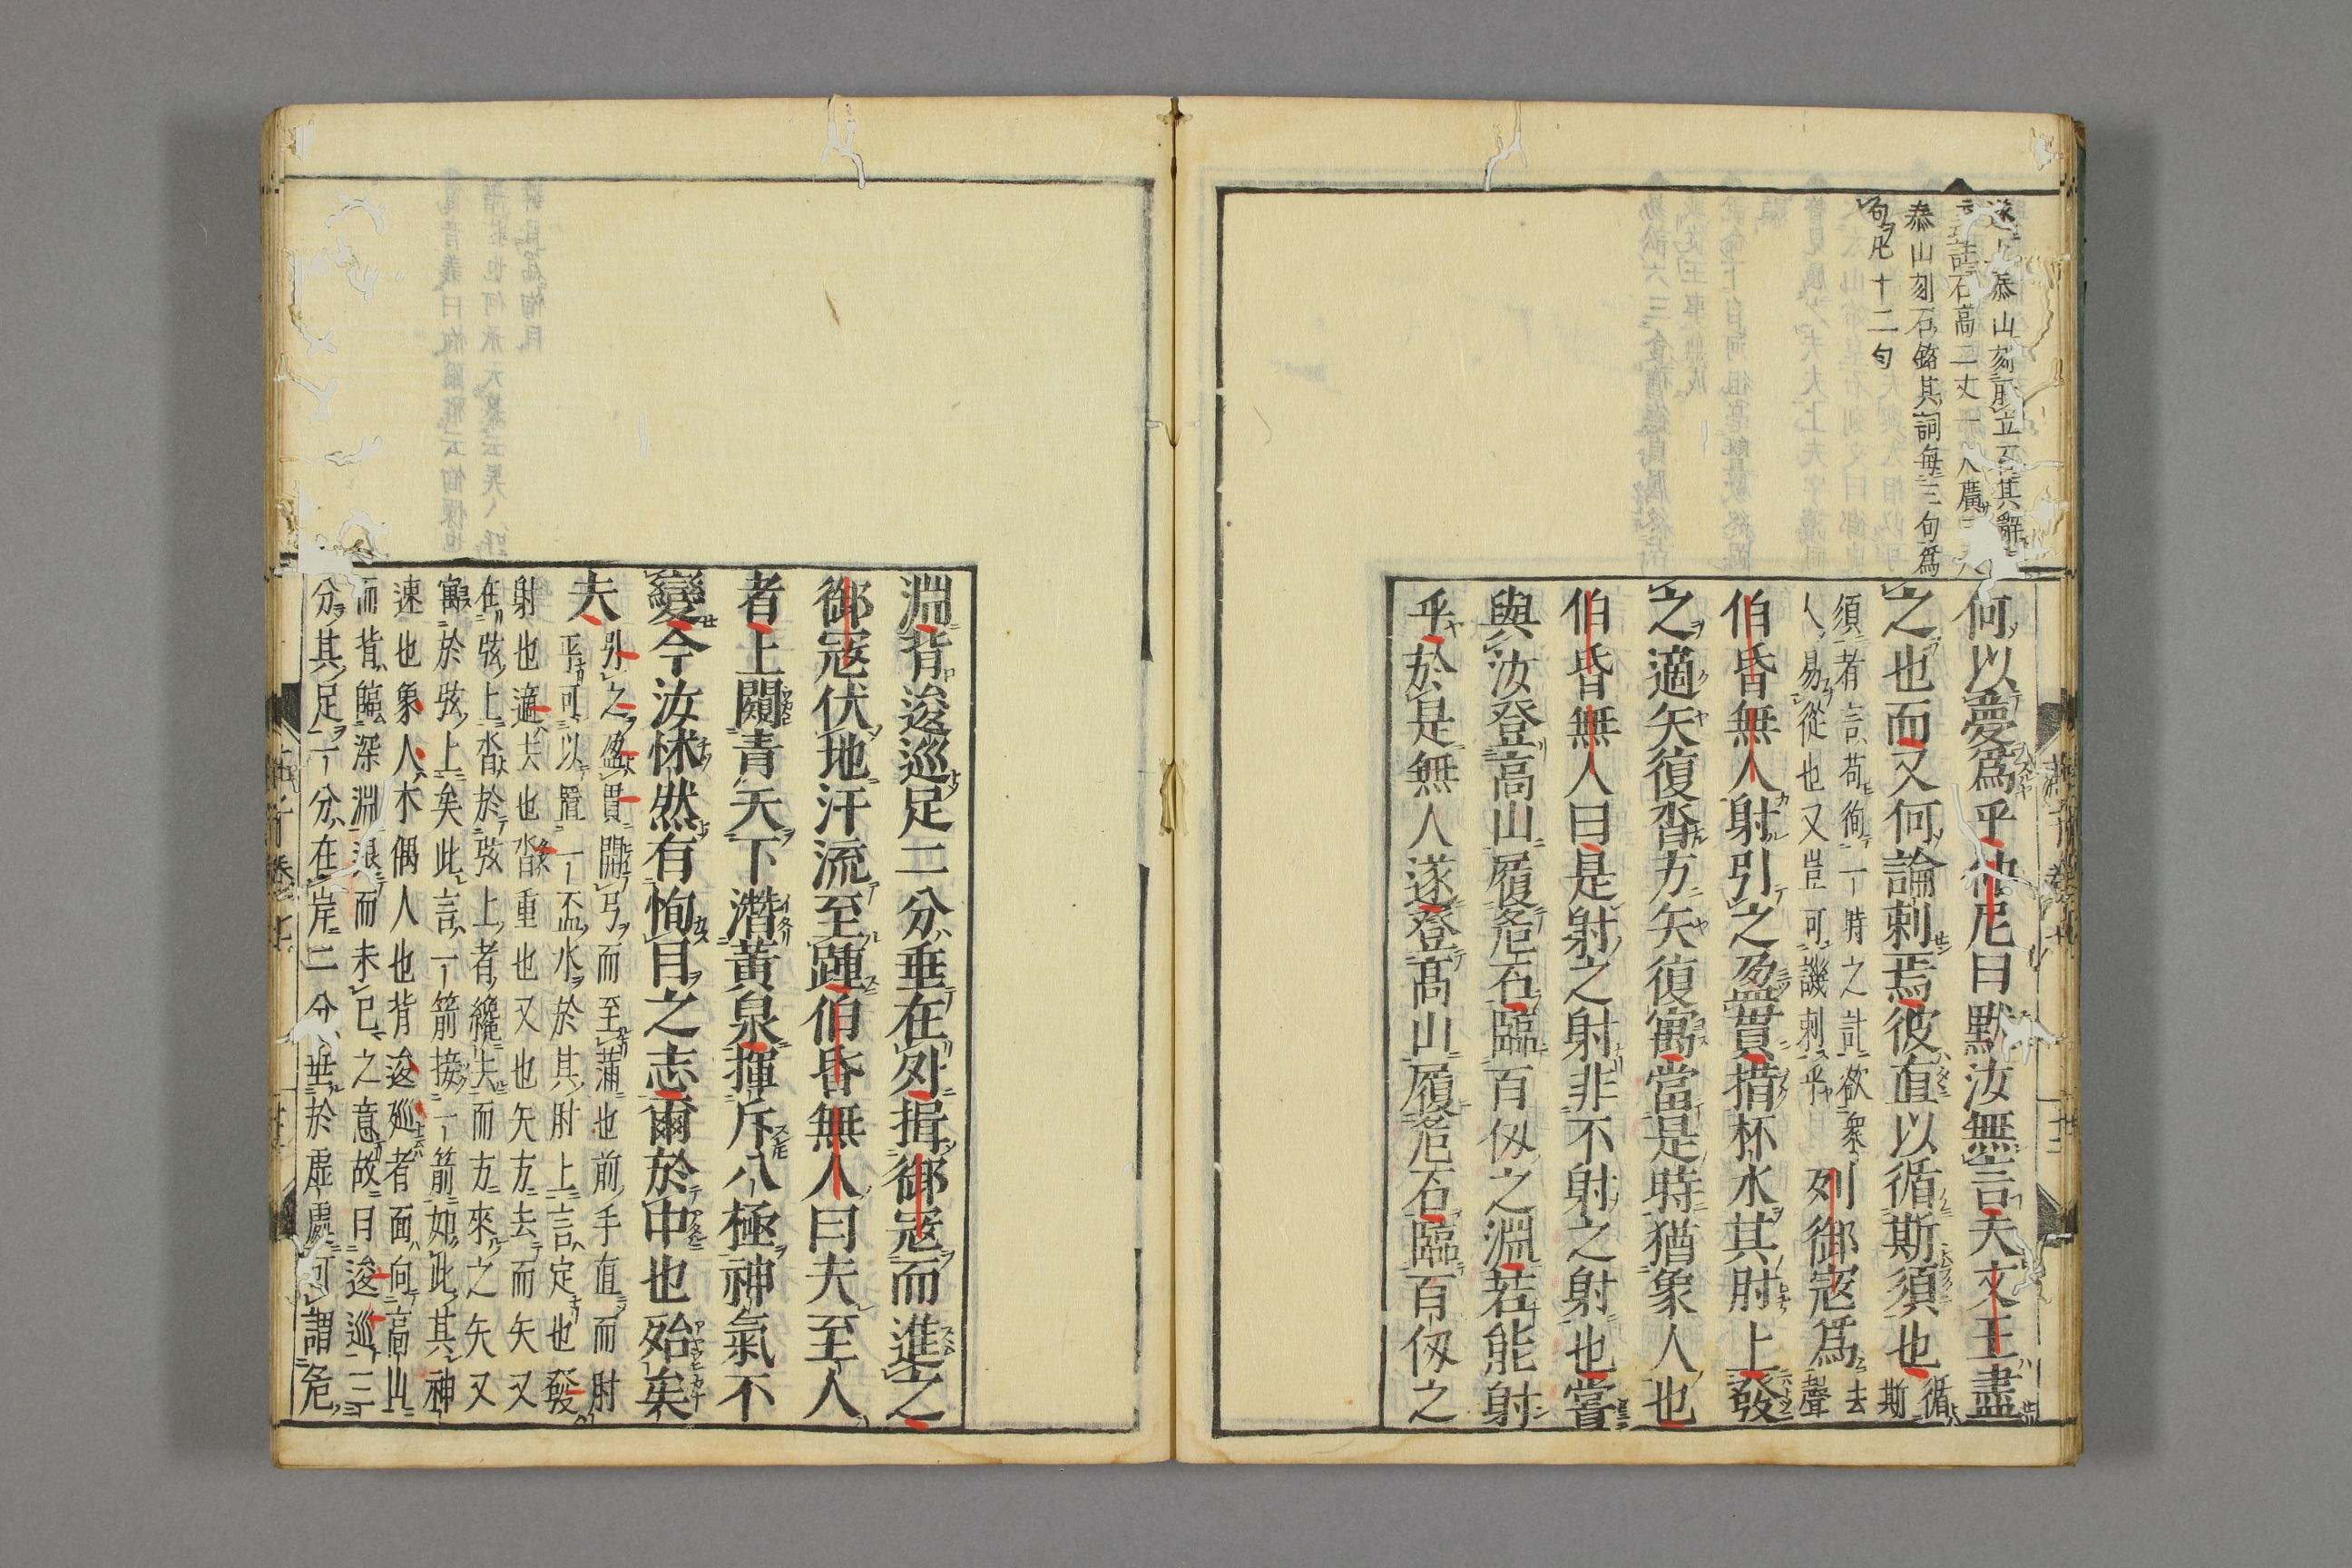 遂上泰山刻所立石其辭
註石高二丈一八廣
泰山刻石銘其詞每三句爲
句凡十二句
何以夢爲乎仲尼曰默汝無言夫文王盡
之也而又何論刺焉彼直以循斯須也循斯
須者言苟徇一時之計欲衆
人易從也又豈可譏刺乎
列御寇爲去聲
伯昏無人射引之盈貫措杯水其肘上發
之適矢復沓方矢復寓當是時猶象人也
伯昏無人曰是射之射非不射之射也嘗
與汝登高山履危石臨百仭之淵若能射
乎於是無人遂登高山履危石臨百仭之
淵背逡巡足二分垂在外揖御寇而進之
御寇伏地汗流至踵伯昏無人曰夫至人
者上闚青天下潛黃泉揮斥八極神氣不
變今汝怵然有恂目之志爾於中也殆矣
夫
引之盈貫開弓而至滿也前手直而肘
平可以置一盃水於其肘上言定也發
射也適去也沓重也又也矢方去而矢又
在弦上沓於弦上者纔去而方來之矢又
寓於弦上矣此言一箭接一箭如此其神
速也象人木偶人也背逡巡者面向高山
而背臨深淵退而未已之意故曰逡巡三
分其足一分在岸二分垂於虛處可謂危